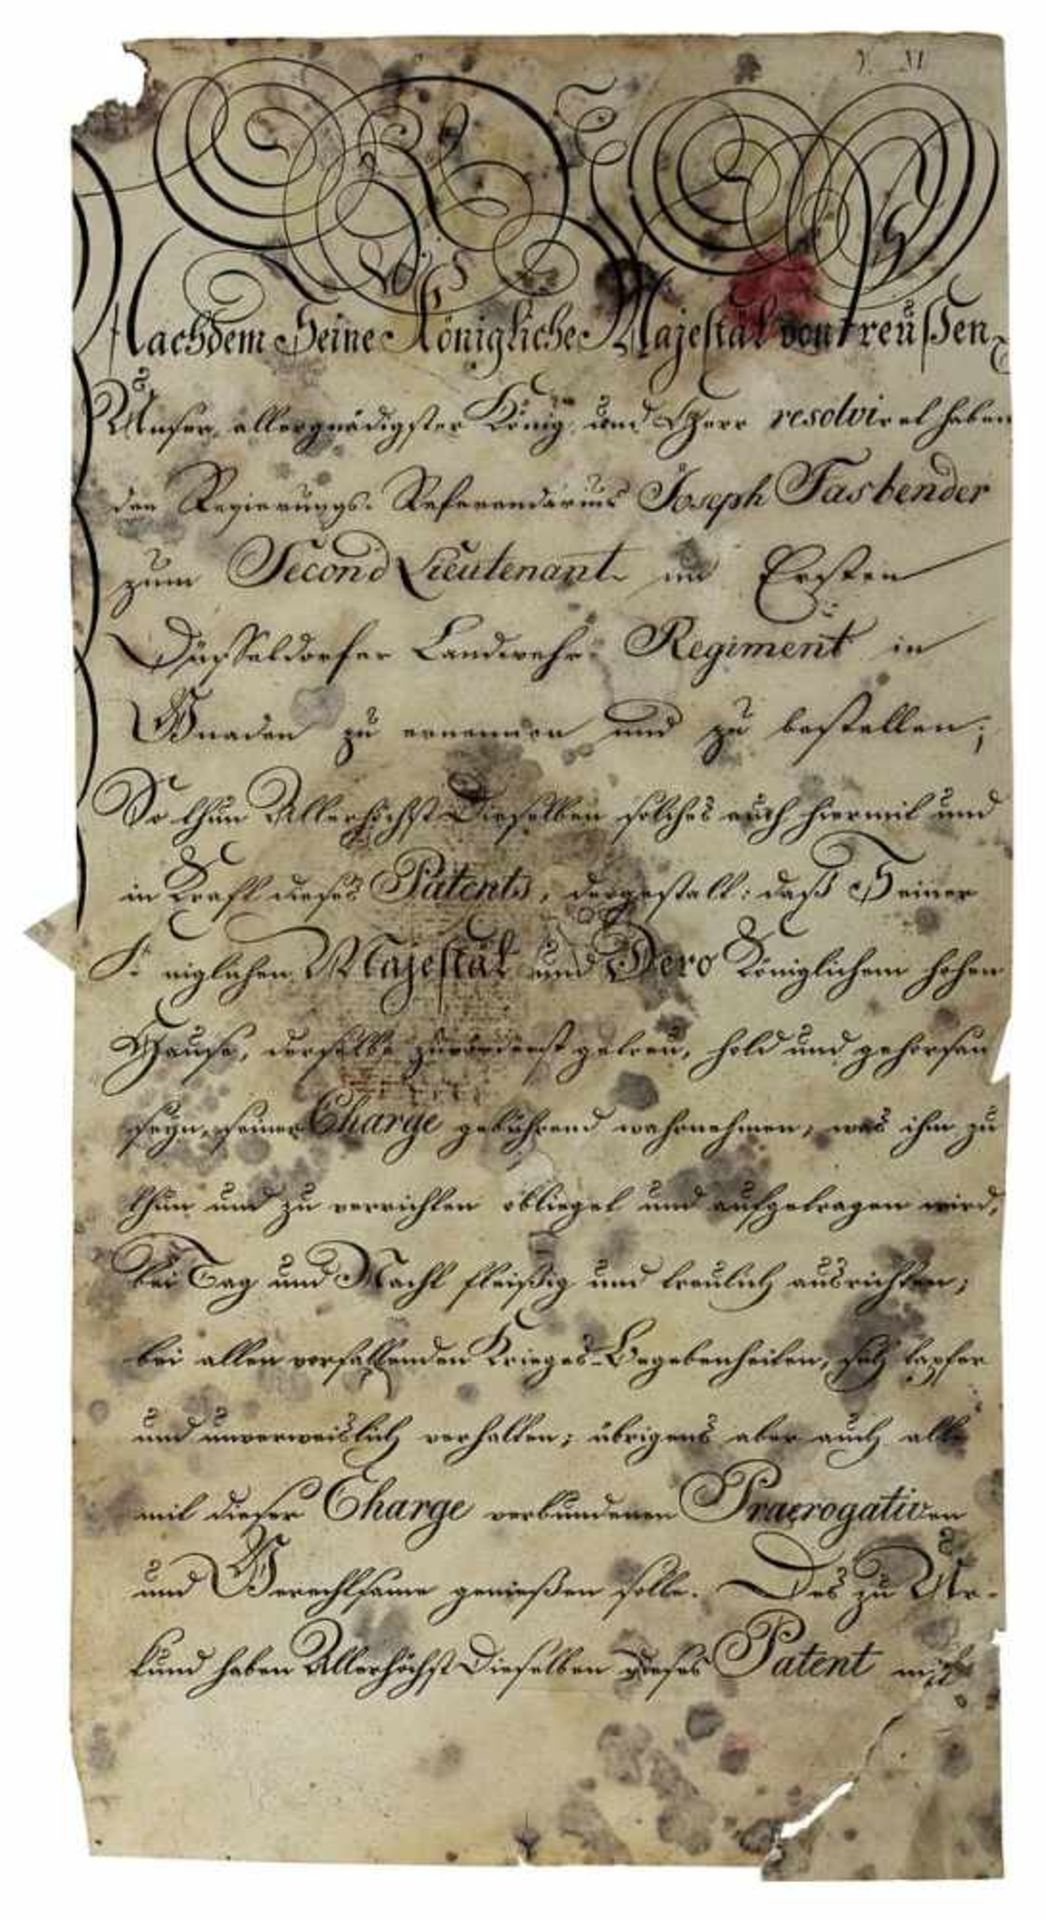 Nachdem Seine Königliche Majestät von Preußen
Unser allergnädigster König und Herr resolviret haben
den Regierungs-Referendarius Joseph Fasbender
zum Second Lieutenant im Ersten
Düsseldorfer Landwehr-Regiment in
Gnaden zu ernennen und zu bestellen;
So thun Allerhöchst Dieselben solches auch hiermit und
in Kraft dieses Patents, dergestalt: daß Seiner
Königlichen Majestät und Dero Königlichem hohen
Hause, derselbe zuvörderst getreu, hold und gehorsam
seyn, seiner Charge gebührend wahrnehmen, was ihm zu
thun und zu verrichten obliegel und aufgetragen wird,
bei Tag und Nacht fleißig und treulich ausrichten;
bei allen vorfallenden Krieges-Begebenheiten, sich tapfer
und unverweislich verhalten; übrigens aber auch alle
mit dieser Charge verbundenen Praerogativen
und Gerechtsame genießen solle. Des zu Ur-
kund haben Allerhöchst Dieselben dieses Patent mit